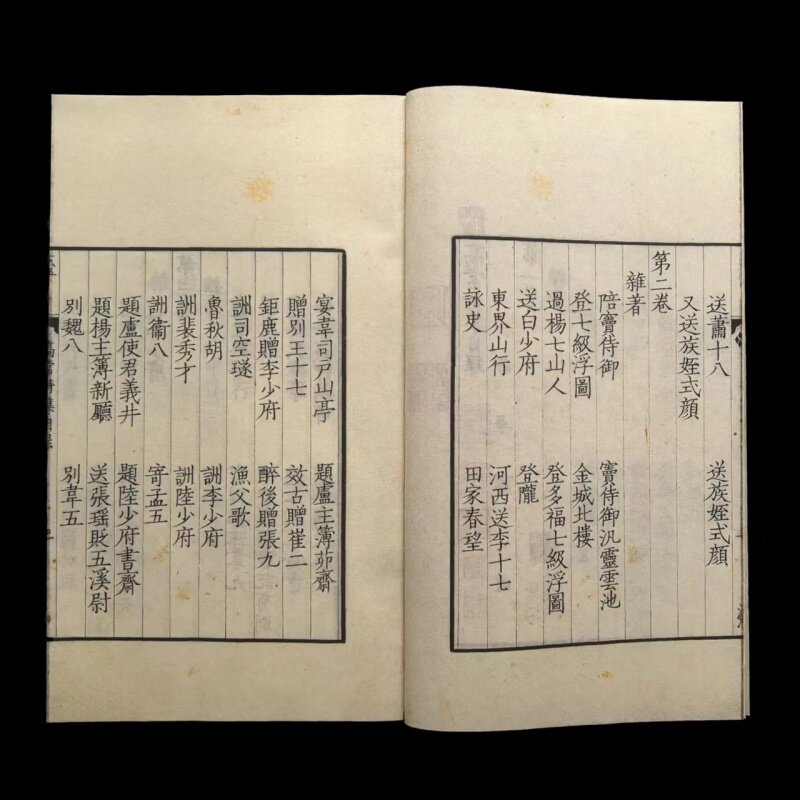 送蕭十八 送族姪式顔
又送族姪式顔
第二卷
雜著
陪竇侍御 竇侍御汎靈雲池
登七級浮圖 金城北樓
過楊七山人 登多福七級浮圖
送白少府 登隴
東界山行 河西送李十七
詠史 田家春望
宴韋司戸山亭 題盧主簿茆齋
贈別王十七 效古贈崔二
鉅鹿贈李少府 醉後贈張九
詶司空璲 漁父歌
魯秋胡 詶李少府
詶裴秀才 詶陸少府
詶衞八 寄孟五
題盧使君義井 題陸少府書齋
題楊主簿新廳 送張瑶貶五溪尉
別魏八 別韋五